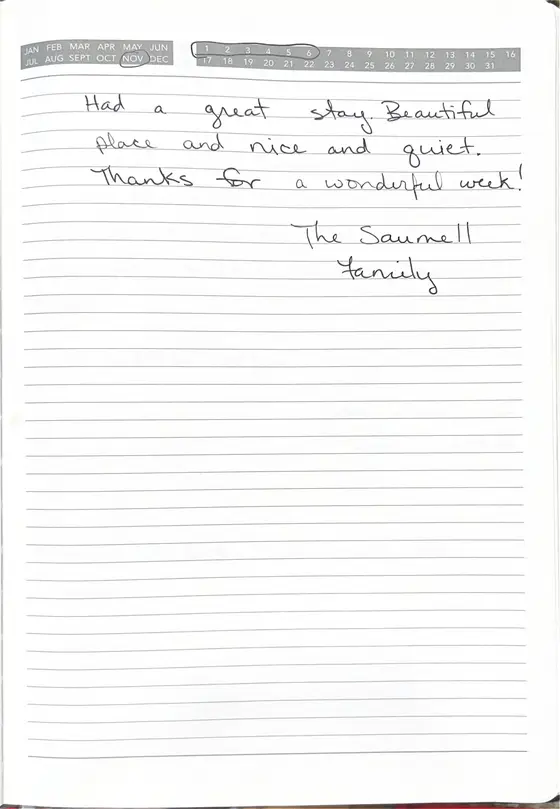 JAN FEB MAR APR MAY JUN 1 2 3 4 5 6 7 8 9 10 11 12 13 14 15 16
JUL AUG SEPT OCT NOV DEC 17 18 19 20 21 22 23 24 25 26 27 28 29 30 31
Had a great stay. Beautiful
place and nice and quiet.
Thanks for a wonderful week!
The Saumell
Family